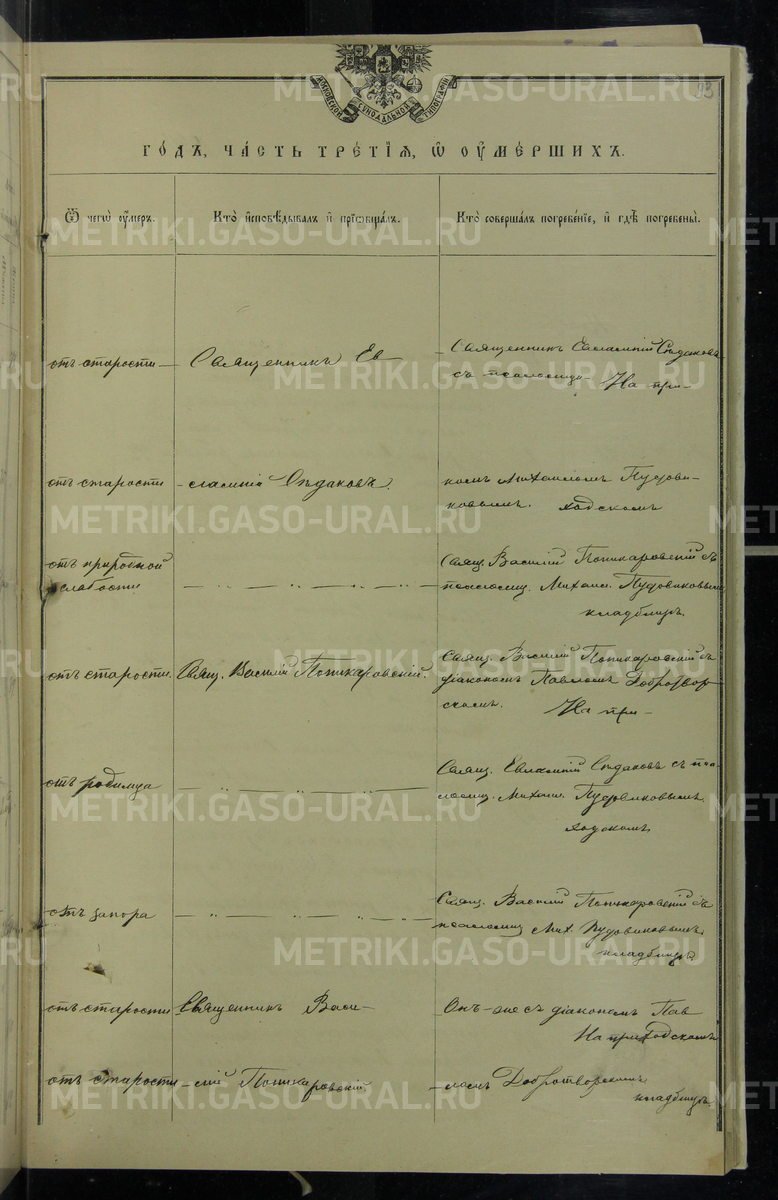 93
МОСКОВСКОЙ СѴНОДАЛЬНОЙ ТИПОГРАФІИ
ГО́ДЪ, ЧА́СТЬ ТРЕ́ТІЯ, Ѡ҆ ОУ҆МЕ́РШИХЪ.
Ѿ чегѡ̀ оу҆́меръ.
Кто̀ и҆сповѣ́дывалъ и҆ прїѡбща́лъ.
Кто̀ соверша́лъ погребе́нїе, и҆ гдѣ̀ погребены̀.
отъ старости
Священникъ Ев
Священникъ Евлампій Сѣдаковъ
съ псаломщи-
На при-
отъ старости
-лампій Сѣдаковъ.
комъ Михаиломъ Пудови-
ковымъ. ходскомъ
отъ природной
слабости
— „ — „ — „ —
Свящ. Василій Поликаровскій съ
псаломщ. Михаил. Пудовиковымъ
кладбищѣ.
отъ старости.
Свящ. Василій Поликаровскій.
Свящ. Василій Поликаровскій съ
діакономъ Павломъ Добротвор-
скимъ. На при-
отъ родимца
— „ — „ — „ —
Свящ. Евлампій Сѣдаковъ съ пса-
ломщ. Михаил. Пудовиковымъ.
ходскомъ
отъ запора
— „ — „ — „ —
Свящ. Василій Поликаровскій съ
псаломщ. Мих. Пудовиковымъ.
кладбищѣ
отъ старости
Священникъ Васи-
Онъ-же съ діакономъ Пав
На приходскомъ
отъ старости
-лій Поликаровскій
-ломъ Добротворскимъ
кладбищѣ.
METRIKI.GASO-URAL.RU